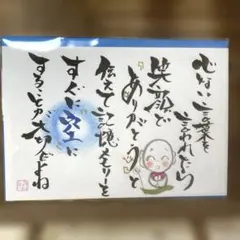 心ない言葉を
言われたら
笑顔で
ありがとうと
伝えて言魂メモリーを
すぐに空に
することが大切だよね